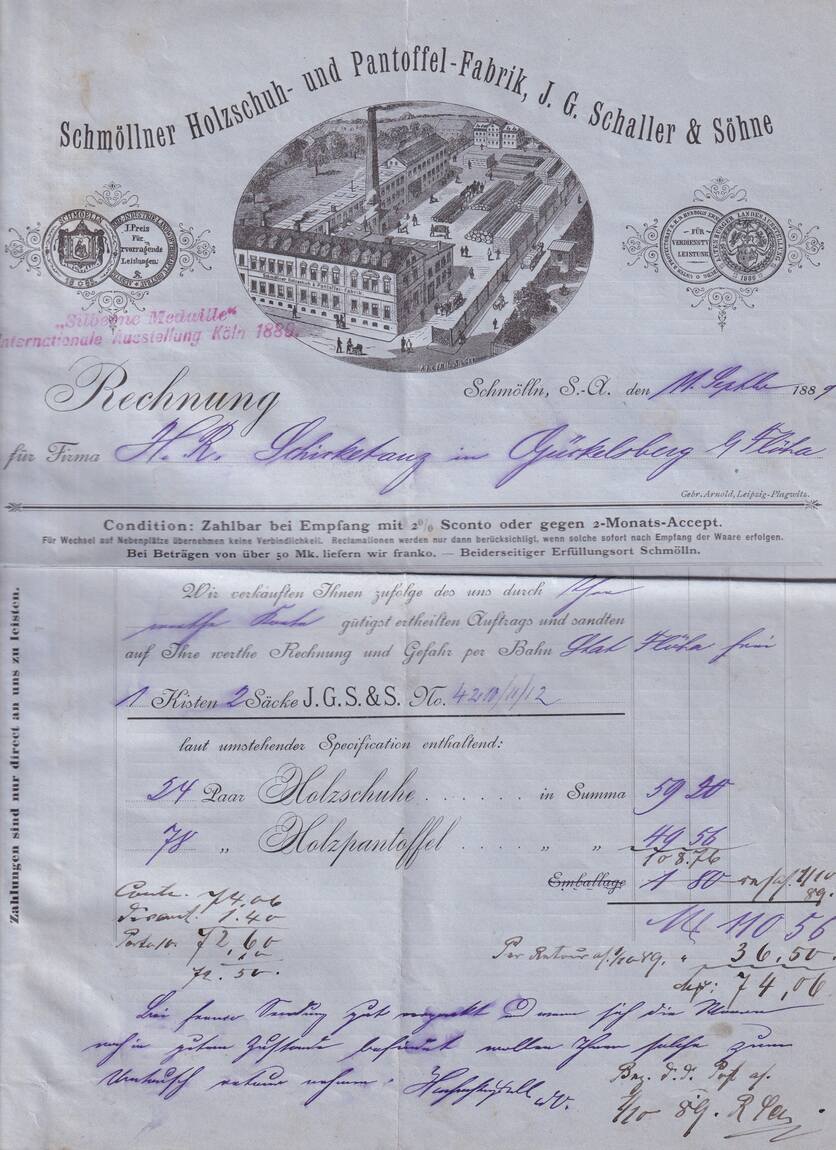 Schmöllner Holzschuh- und Pantoffel-Fabrik, J. G. Schaller & Söhne
SCHMOELLN
I. Preis
Für
hervorragende
Leistungen.
FÜR
VERDIENSTV
LEISTUNG
LANDESAUSSTELLUNG
1886
„Silberne Medaille“
Internationale Ausstellung Köln 1889.
Rechnung
Schmölln, S.-A. den 11. Septbr 1889
für Firma H. R. Schirketanz in Gückelsberg b/ Flöha
Gebr. Arnold, Leipzig-Plagwitz.
Condition: Zahlbar bei Empfang mit 2% Sconto oder gegen 2-Monats-Accept.
Für Wechsel auf Nebenplätze übernehmen keine Verbindlichkeit. Reclamationen werden nur dann berücksichtigt, wenn solche sofort nach Empfang der Waare erfolgen.
Bei Beträgen von über 50 Mk. liefern wir franko. — Beiderseitiger Erfüllungsort Schmölln.
Zahlungen sind nur direct an uns zu leisten.
Wir verkauften Ihnen zufolge des uns durch Ihre
werthe Karte gütigst ertheilten Auftrags und sandten
auf Ihre werthe Rechnung und Gefahr per Bahn Stat Flöha frei
1 Kisten 2 Säcke J.G.S.&S. No. 4210/11/12
laut umstehender Specification enthaltend:
24 Paar Holzschuhe . . . . . . in Summa 59 20
78 „ Holzpantoffel . . . . . „ „ 49 56
108.76
Emballage 1 80
M 110 56
Per Retour 36.50.
74,06
74.06
1.40
72,60
10
72.50.
Bei ferner Sendung gut verpackt und wenn sich die Waaren
noch in gutem Zustande befindet wollen Ihnen solche zum
Umtausch retour nehmen.
Bez. d. d. Post
1/10 89.